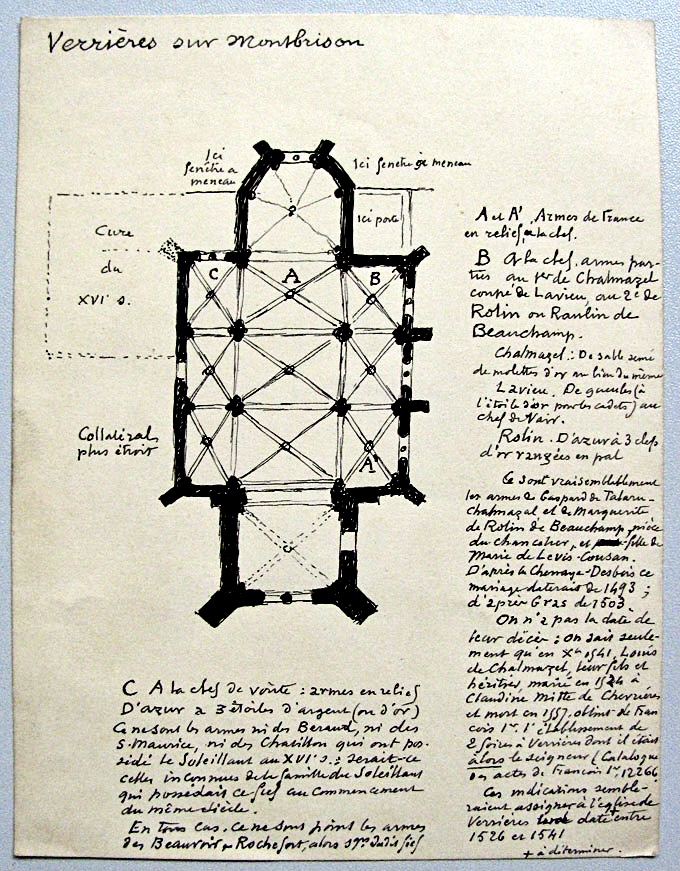 Verrières sur Montbrison
Ici
fenêtre a
meneau
Ici fenêtre à meneau
Ici porte
Cure
du
XVIe s.
C
A
B
Collatéral
plus étroit
A'
A et A' Armes de France
en relief à la clef.
B A la clef, armes par-
ties au 1er de Chalmazel
coupé de Lavieu, au 2e de
Rolin ou Raulin de
Beauchamp.
Chalmazel : De sable semé
de molettes d'or au lion du même
Lavieu. De gueules (à
l'étoile d'or pour les cadets) au
chef de Vair.
Rolin. D'azur à 3 clefs
d'or rangées en pal
Ce sont vraisemblablement
les armes de Gaspard de Talaru-
Chalmazel et de Marguerite
de Rolin de Beauchamp, nièce
du Chancelier, et fille de
Marie de Levis-Cousan.
D'après la Chenaye-Desbois ce
mariage daterait de 1493 ;
d'après Gras de 1503.
On n'a pas la date de
leur décès : on sait seule-
ment qu'en Xbre 1541, Louis
de Chalmazel, leur fils et
héritier, marié en 1524 à
Claudine Mitte de Chevrières
et mort en 1557, obtint de Fran
çois 1er l'établissement de
2 foires à Verrières dont il était
alors le seigneur (Catalogue
des actes de François 1er, 12266.
Ces indications semble-
raient assigner à l'église de
Verrières date+ entre
1526 et 1541
+ à déterminer.
C A la clef de voûte : armes en relief
D'azur a 3 étoiles d'argent (ou d'or)
Ce ne sont les armes ni des Beraud, ni des
S. Maurice, ni des Chatillon qui ont pos-
sédé le Soleillant au XVIe s. : serait-ce
celles inconnues de la famille du Soleillant
qui possédait ce fief au commencement
du même siècle.
En tous cas, ce ne sont point les armes
des Beauvoir Rochefort, alors sgrs dudit fief